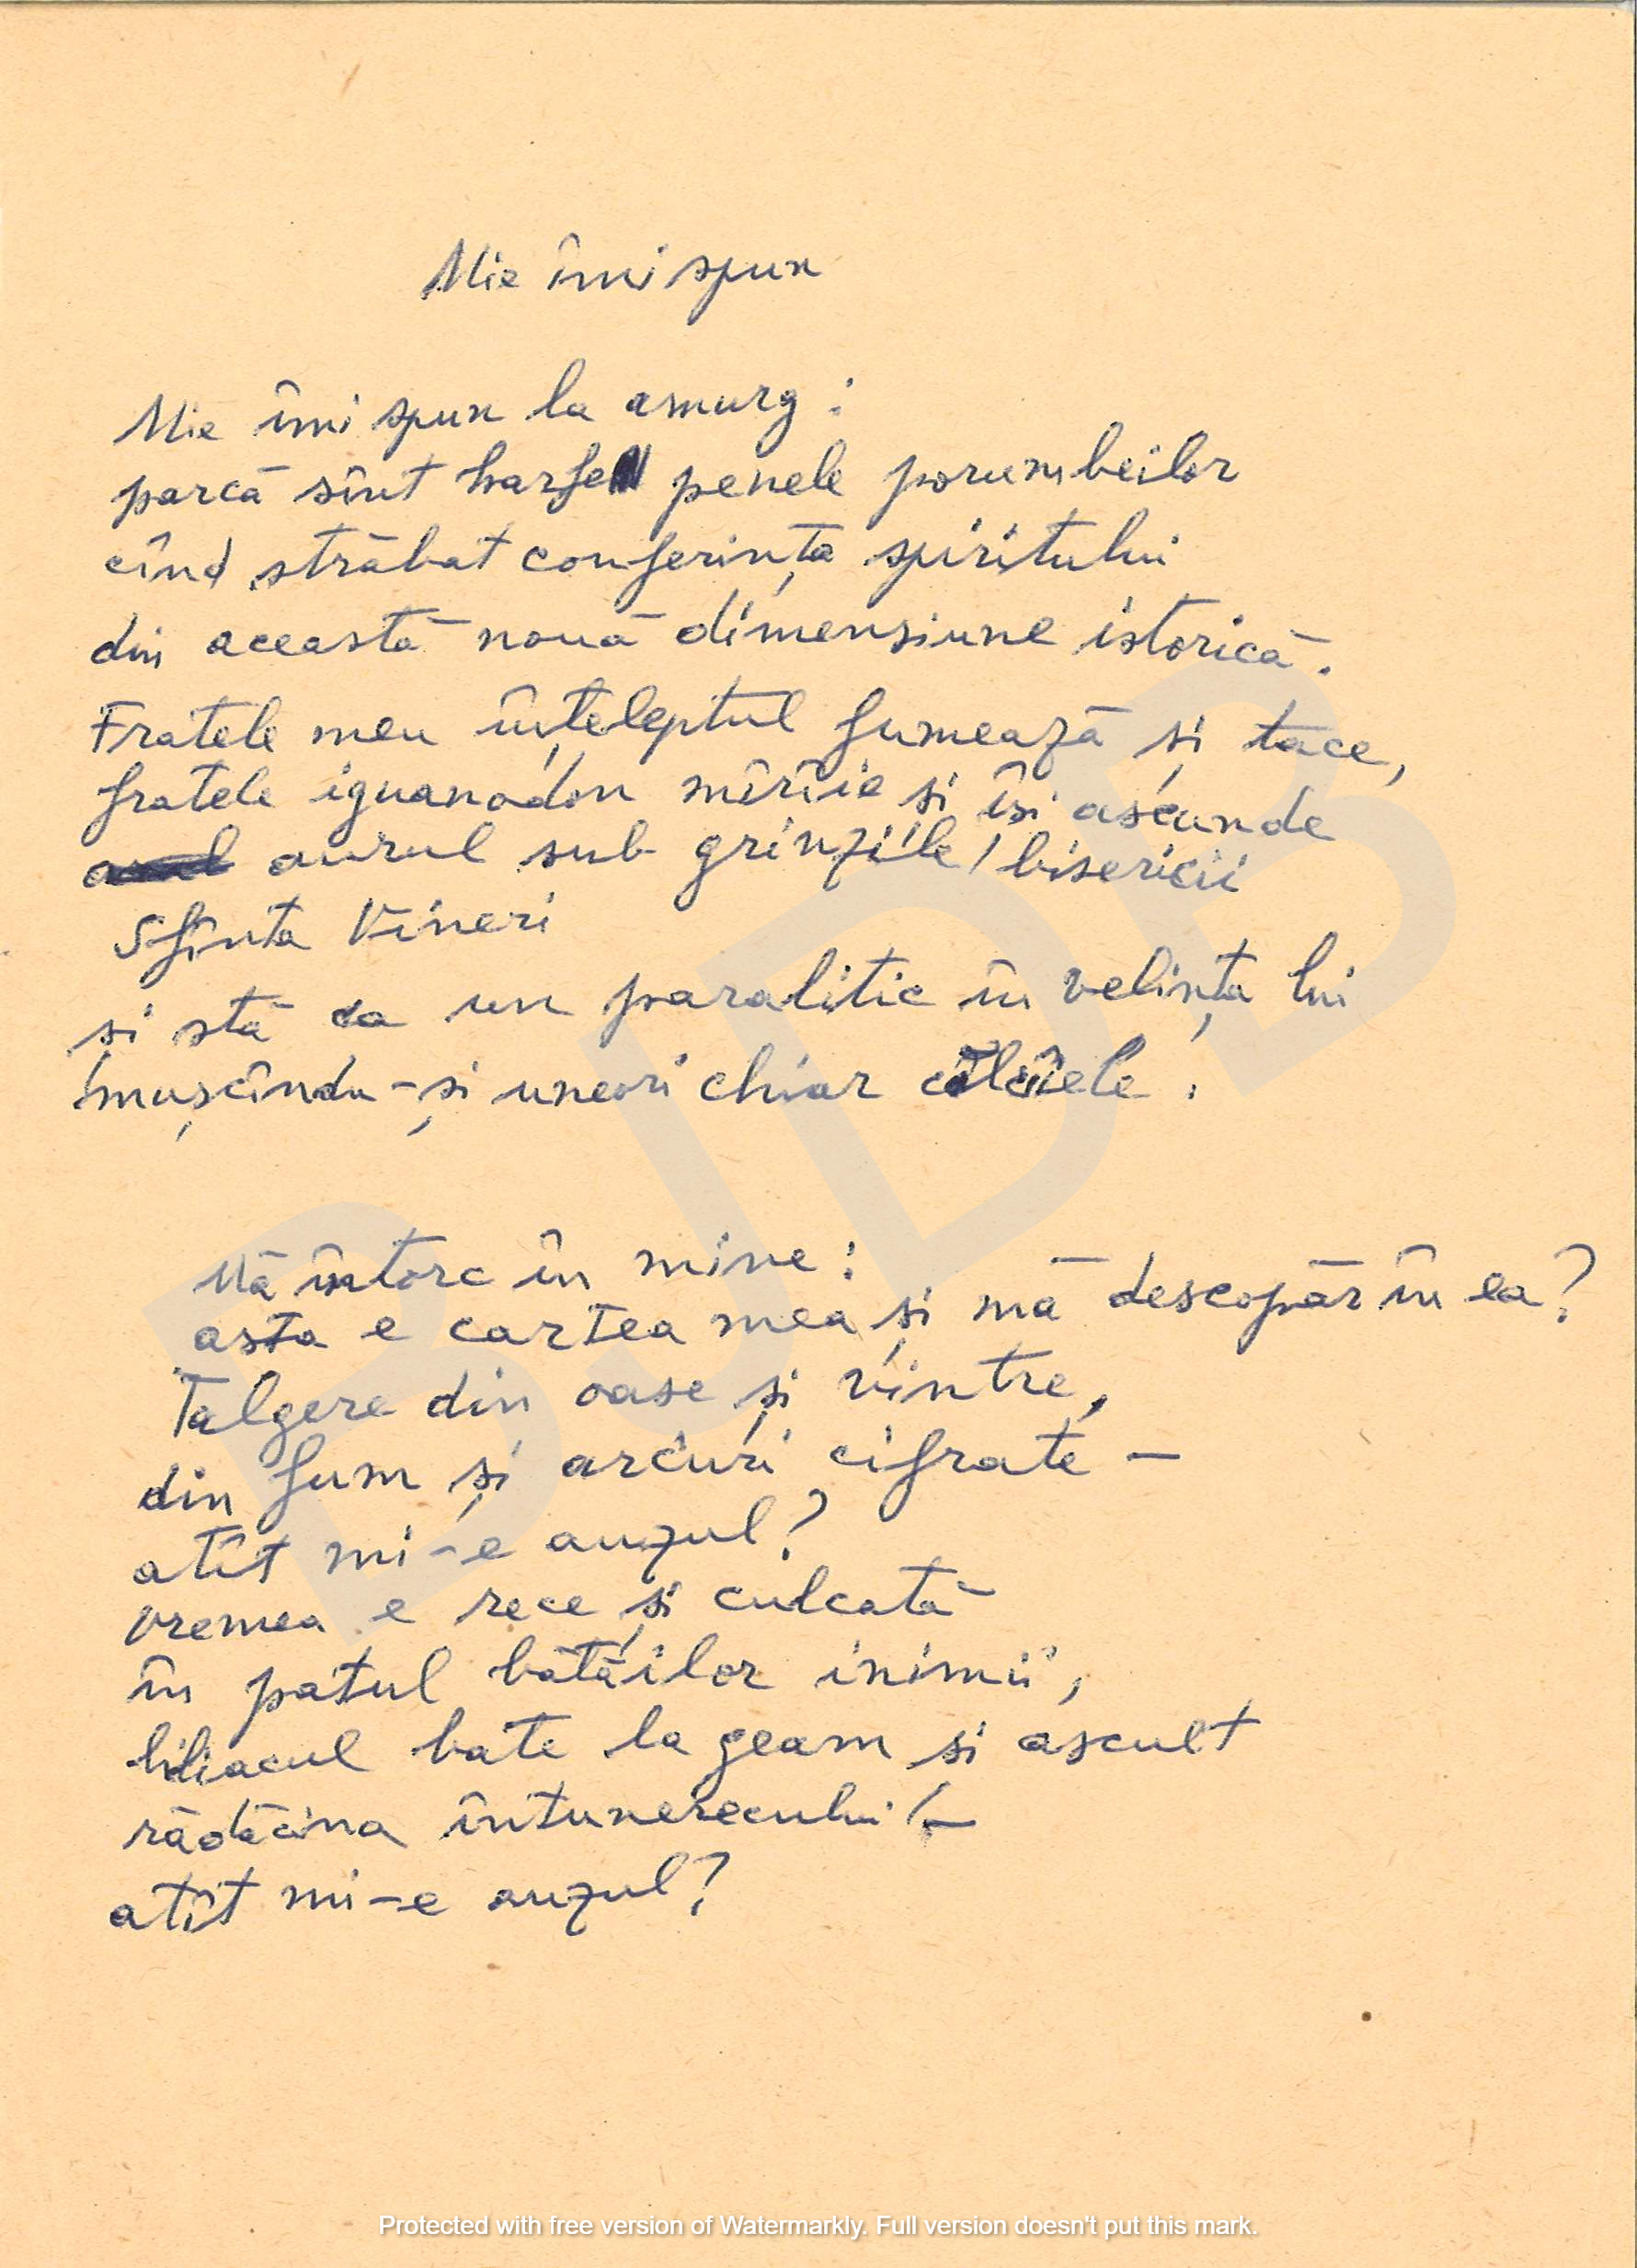 Mie îmi spun
Mie îmi spun la amurg :
parcă sînt harfe penele porumbeilor
cînd străbat conferința spiritului
din această nouă dimensiune istorică.
Fratele meu înțeleptul fumează și tace,
fratele iguanodon mîrîie și își ascunde
aurul sub grinzile bisericii
Sfînta Vineri
si stă ca un paralitic în velința lui
mușcîndu-și uneori chiar călcîiele.
Mă întorc în mine :
asta e cartea mea și mă descopăr în ea?
Talgere din oase și vintre,
din fum și arcuri cifrate –
atît mi-e auzul?
vremea e rece și culcată
în patul bătăilor inimii,
liliacul bate la geam si ascult
rădăcina întunerecului –
atît mi-e auzul?
BJDB
Protected with free version of Watermarkly. Full version doesn't put this mark.